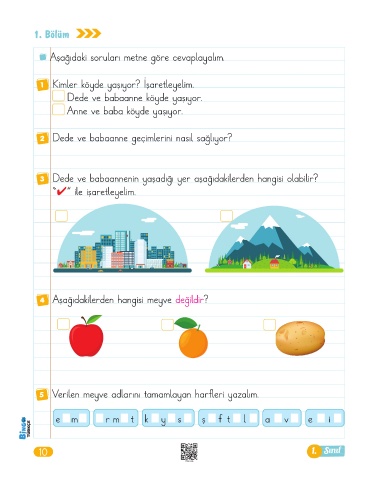 1. Bölüm
Aşağıdaki soruları metne göre cevaplayalım.
1 Kimler köyde yaşıyor? İşaretleyelim.
Dede ve babaanne köyde yaşıyor.
Anne ve baba köyde yaşıyor.
2 Dede ve babaanne geçimlerini nasıl sağlıyor?
3 Dede ve babaannenin yaşadığı yer aşağıdakilerden hangisi olabilir?
"✔" ile işaretleyelim.
4 Aşağıdakilerden hangisi meyve değildir?
5 Verilen meyve adlarını tamamlayan harfleri yazalım.
e m
r m t
k y s
ş f t l
a v
e i
BİNGO
TÜRKÇE
10
1. Sınıf